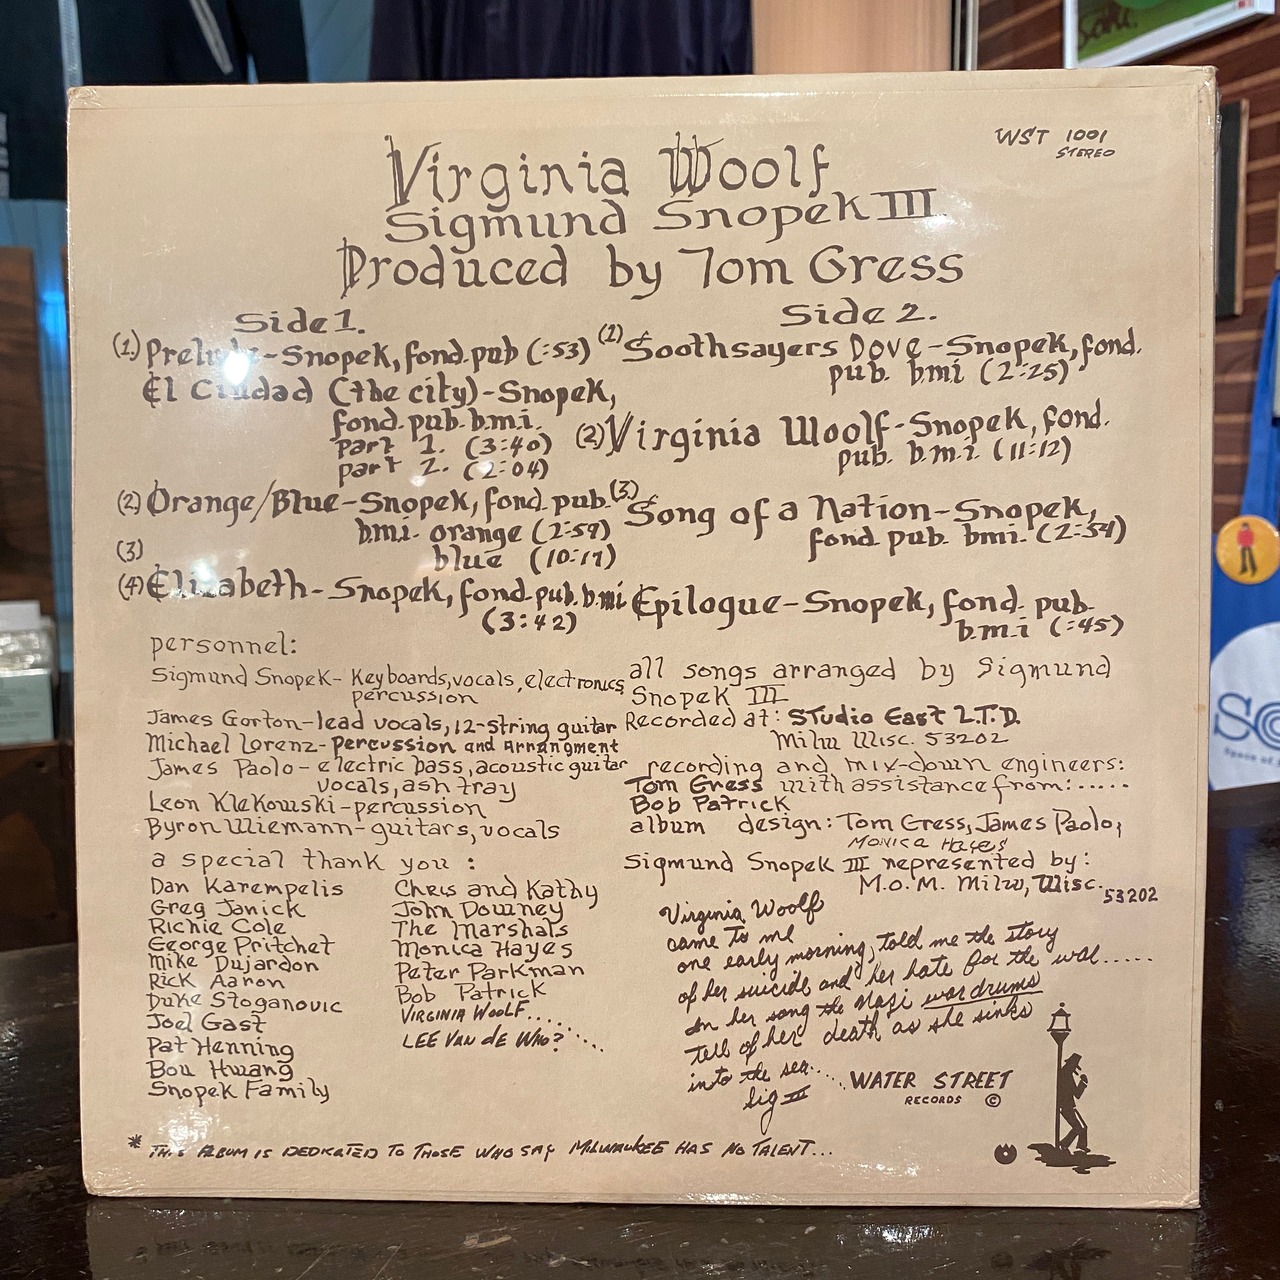 WST 1001
STEREO
Virginia Woolf
Sigmund Snopek III
Produced by Tom Gress
Side 1.
(1.) Prelude-Snopek, fond. pub (:53)
El Ciudad (the city)-Snopek,
fond. pub. b.m.i.
part 1. (3:40)
part 2. (2:04)
(2) Orange/Blue-Snopek, fond. pub.
b.m.i. orange (2:59)
(3) blue (10:17)
(4) Elizabeth-Snopek, fond. pub. b.mi
(3:42)
Side 2.
(1) Soothsayers Dove-Snopek, fond.
pub. bmi (2:25)
(2) Virginia Woolf-Snopek, fond.
pub. b.m.i. (11:12)
(3) Song of a Nation-Snopek,
fond pub. bmi. (2:54)
Epilogue-Snopek, fond. pub.
b.m.i (:45)
personnel:
Sigmund Snopek- Keyboards, vocals, electronics,
percussion
James Gorton-lead vocals, 12-string guitar
Michael Lorenz-percussion and Arrangment
James Paolo-electric bass, acoustic guitar
vocals, ash tray
Leon Klekowski-percussion
Byron Wiemann-guitars, vocals
a special thank you :
Dan Karempelis
Greg Janick
Richie Cole
George Pritchet
Mike Dujardon
Rick Aaron
Duke Stoganovic
Joel Gast
Pat Henning
Bou Hwang
Snopek Family
Chris and Kathy
John Downey
The Marshals
Monica Hayes
Peter Parkman
Bob Patrick
VIRGINIA WOOLF.....
LEE VAN dE WHO?.....
all songs arranged by Sigmund
Snopek III
Recorded at: STudio East L.T.D.
Milw Wisc. 53202
recording and mix-down engineers:
Tom Gress with assistance from:.....
Bob Patrick
album design: Tom Gress, James Paolo,
Monica Hayes
Sigmund Snopek III represented by:
M.O.M. Milw, Wisc. 53202
Virginia Woolf
came to me
one early morning, told me the story
of her suicide and her hate for the war.....
In her song the Nazi war drums
tell of her death as she sinks
into the sea.....
Sig III
WATER STREET
RECORDS ©
* THIS ALBUM IS DEDICATED TO THOSE WHO SAY MILWAUKEE HAS NO TALENT...